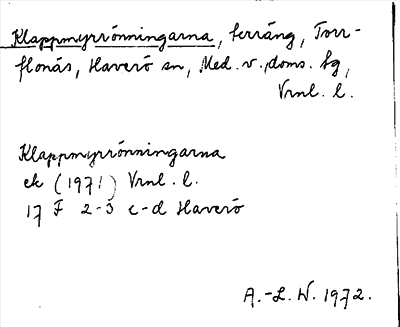 Klappmyrrönningarna, terräng, Torr-
flonäs, Haverö sn, Med. v. doms. sg,
Vrnl. l.
Klappmyrrönningarna
ek (1971) Vrnl. l.
17 F 2-3 c-d Haverö
A.-L. W. 1972.